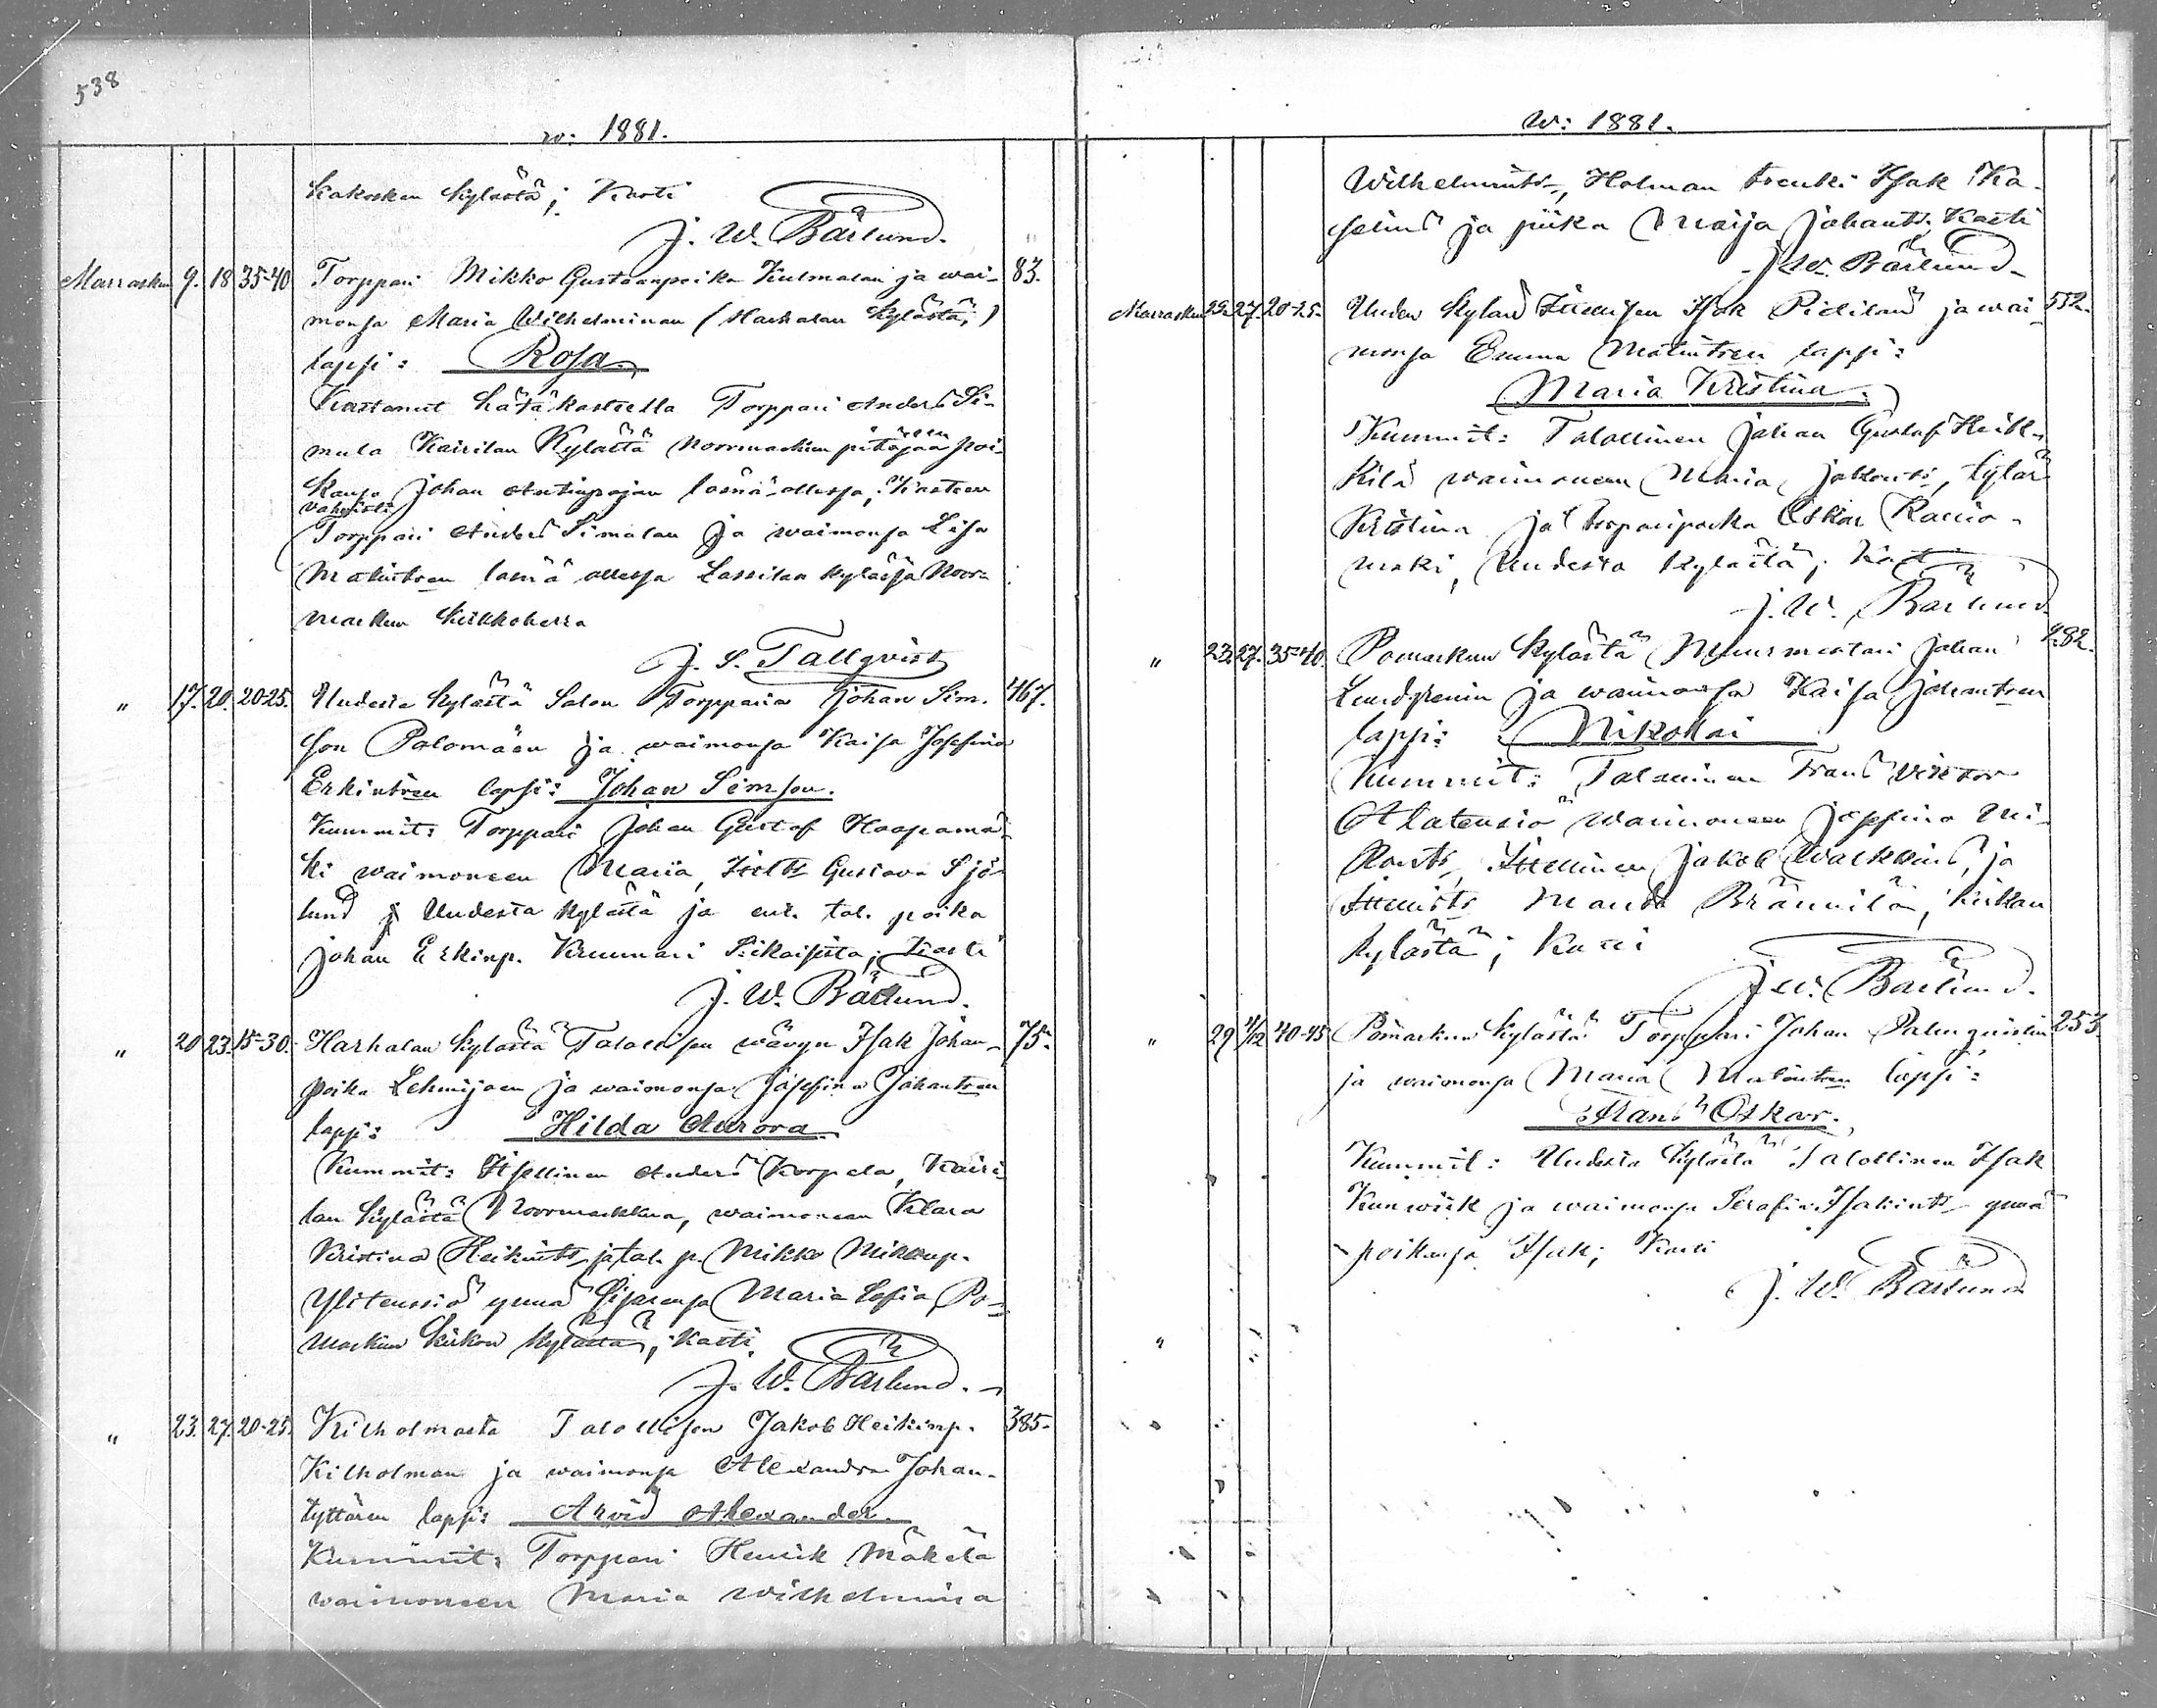 538
w: 1881.
Kakosken kylästä; Kasti
J. W. Bärlund.
Marraskuu 9. 18 35-40 Torppari Mikko Gustaanpoika Kulmalan ja wai- 83.
monsa Maria Wilhelminan (Harhalan kylästä;)
lapsi: Rosa
Kastanut hätäkasteella Torppari Anders Si-
mula Kairilan Kylästä Noormarkun pitäjään poi-
kansa Johan Antinpojan läsnä-ollessa; Kasteen
vahvisti
Torppari Anders Simulan ja waimonsa Lisa
Matintren läsnä ollessa Lassilan kylässä Noor-
markun Kirkkoherra
J. S. Tallqvist
" 17. 20. 20-25. Uudesta kylästä Salon Torpparin Johan Sim- 467.
son Palomäen ja waimonsa Kaisa Josefina
Erkintren lapsi: Johan Simson.
Kummit: Torppari Johan Gustaf Haapamä-
ki waimoneen Maria, Gustava Sjö-
lund Uudesta kylästä ja tal. poika
Johan Erkinp. Krummari Siikaisista; Kasti
J. W. Bärlund.
" 20 23. 15-30. Harhalan kylästä Talollisen wävyn Isak Johan- 75.
poika Lehmijoen ja waimonsa Josefina Johantren
lapsi: Hilda Aurora
Kummit: Itsellinen Anders Korpela, Kairi-
lan kylästä Noormarkkua, waimoneen Klara
Kristina Heikints, ja tal. p. Mikko Mikonp.
Ylitenssiö ynnä sisarensa Maria Sofia, Po-
markun kirkon kylästä; Kasti
J. W. Bärlund.
" 23. 27. 20-25. Kilholmasta Talollisen Jakob Heikinp. 385.
Kilholman ja waimonsa Alexandra Johan-
tyttären lapsi: Arvid Alexander.
Kummit: Torppari Henrik Mäkelä
waimoneen Maria Wilhelmina
w: 1881.
Wilhelmints, Holman trenki Isak Ka-
ja piika Maija Johants; Kasti
J. W. Bärlund
Marraskuu 23. 27. 20-25. Uuden kylän Itsellisen Isak Pietilän ja wai- 552.
monsa Emma Matintren lapsi:
Maria Kristina.
Kummit: Talollinen Johan Gustaf Heik-
kilä waimoneen Maria, tytär
Kristina ja torpparipoika Oskar Raunio-
mäki, Uudesta kylästä; Kasti
J. W. Bärlund
" 23. 27. 35-40. Pomarkun kylästä Muurmestari Johan 282.
Lundgrenin ja waimonsa Kaisa Johantren
lapsi: Nikolai
Kummit: Talollinen Frans Viktor
Alatensiö waimoneen Josefina Mi-
konts, Itsellinen Jakob ja
Itsellists Manda Brännilä, kirkon
kylästä; Kasti
J. W. Bärlund.
" 29 4/12 40-45 Pomarkun kylästä Torppari Johan Palmqvistin 253.
ja waimonsa Maria Matintren lapsi:
Frans Oskar.
Kummit: Uudesta kylästä Talollinen Isak
ja waimonsa Serafia Isakints ynnä
poikansa Isak; Kasti
J. W. Bärlund
"